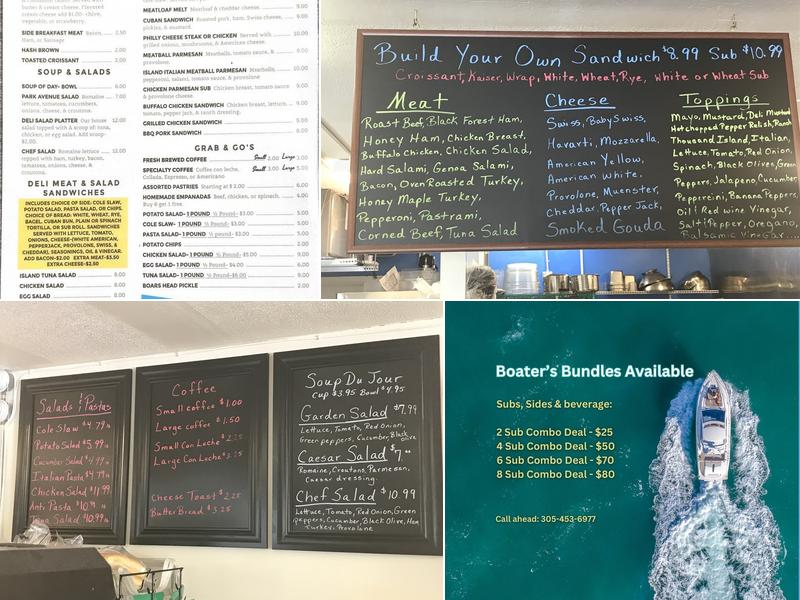 butter & cream cheese. Flavored
cream cheese add $1.00- chive,
vegetable, or strawberry.
SIDE BREAKFAST MEAT Bacon, ... 3.50
Ham, or Sausage
HASH BROWN 2.00
TOASTED CROISSANT 2.00
SOUP & SALADS
SOUP OF DAY- BOWL 6.00
PARK AVENUE SALAD Romaine ... 7.00
lettuce, tomatoes, cucumbers,
onions, cheese, & croutons.
DELI SALAD PLATTER Our house ... 12.00
salad topped with a scoop of: tuna,
chicken, or egg salad. Add scoop-
$2.00.
CHEF SALAD Romaine lettuce ... 12.00
topped with ham, turkey, bacon,
tomatoes, onions, cheese, &
croutons.
DELI MEAT & SALAD
SANDWICHES
INCLUDES CHOICE OF SIDE: COLE SLAW,
POTATO SALAD, PASTA SALAD, OR CHIPS.
CHOICE OF BREAD: WHITE, WHEAT, RYE,
BAGEL, CUBAN BUN, PLAIN OR SPINACH
TORTILLA, OR SUB ROLL. SANDWICHES
SERVED WITH LETTUCE, TOMATO,
ONIONS, CHEESE-(WHITE AMERICAN,
PEPPERJACK, PROVOLONE, SWISS, &
CHEDDAR), SEASONINGS, OIL & VINEGAR.
ADD BACON-$2.00 EXTRA MEAT-$3.50
EXTRA CHEESE-$2.50
ISLAND TUNA SALAD 8.00
CHICKEN SALAD 8.00
EGG SALAD 8.00
MEATLOAF MELT Meatloaf & cheddar cheese. 9.00
CUBAN SANDWICH Roasted pork, ham, Swiss cheese, ... 9.00
pickles, & mustard.
PHILLY CHEESE STEAK OR CHICKEN Served with ... 10.00
grilled onions, mushrooms, & American cheese.
MEATBALL PARMESAN Meatballs, tomato sauce, & ... 9.00
provolone.
ISLAND ITALIAN MEATBALL PARMESAN Meatballs, ... 10.00
pepperoni, salami, tomato sauce, & provolone
CHICKEN PARMESAN SUB Chicken breast, tomato sauce ... 9.00
& provolone cheese.
BUFFALO CHICKEN SANDWICH Chicken breast, lettuce, ... 9.00
tomato, pepper jack, & ranch dressing.
GRILLED CHICKEN SANDWICH 9.00
BBQ PORK SANDWICH 8.00
GRAB & GO'S
FRESH BREWED COFFEE Small 2.00 Large 3.00
SPECIALTY COFFEE Coffee con leche, Small 3.00 Large 5.00
Colada, Espresso, or Americano
ASSORTED PASTRIES Starting at $ 2.00 6.00
HOMEMADE EMPANADAS Beef, chicken, or spinach. 4.00
Buy 6 get 1 free.
POTATO SALAD- 1 POUND ½ Pound- $3.00 5.00
COLE SLAW- 1 POUND ½ pound- $3.00 5.00
PASTA SALAD- 1 POUND ½ pound- $3.00 5.00
POTATO CHIPS 2.00
CHICKEN SALAD- 1 POUND ½ Pound- $5.00 9.00
EGG SALAD- 1 POUND ½ Pound- $4.00 6.00
TUNA SALAD- 1 POUND ½ Pound-$6.00 9.00
BOARS HEAD PICKLE 2.00
Build Your Own Sandwich $8.99 Sub $10.99
Croissant, Kaiser, Wrap, White, Wheat, Rye, white or Wheat Sub
Meat
Roast Beef, Black Forest Ham,
Honey Ham, Chicken Breast,
Buffalo Chicken, Chicken Salad,
Hard Salami, Genoa Salami,
Bacon, Oven Roasted Turkey,
Honey Maple Turkey,
Pepperoni, Pastrami,
Corned Beef, Tuna Salad
Cheese
Swiss, Baby Swiss,
Havarti, Mozzarella,
American Yellow,
American White,
Provolone, Muenster,
Cheddar, Pepper Jack,
Smoked Gouda
Toppings
Mayo, Mustard, Deli Mustard
Hot Chopped Pepper Relish, Ranch
Thousand Island, Italian,
Lettuce, Tomato, Red Onion,
Spinach, Black Olives, Green
Peppers, Jalapeno, Cucumber,
Peppercini, Banana Peppers,
Oil & Red wine Vinegar,
Salt & Pepper, Oregano,
Balsamic Vinegar...
Salads & Pastas
Cole Slaw $4.79 lb
Potato Salad $5.99 lb
Cucumber Salad $4.99 lb
Italian Pasta $4.79 lb
Chicken Salad $11.99
Anti Pasta $10.99 lb
Tuna Salad $10.99 lb
Coffee
Small coffee $1.00
Large coffee $1.50
Small Con Leche $2.25
Large Con Leche $3.25
Cheese Toast $2.25
Butter Bread $3.25
Soup Du Jour
Cup $3.95 Bowl $4.95
Garden Salad $7.99
Lettuce, Tomato, Red Onion,
Green peppers, Cucumber, Black olive
Caesar Salad $7.
Romaine, Croutons, Parmesian,
Caesar dressing.
Chef Salad $10.99
Lettuce, Tomato, Red Onion, Green
peppers, Cucumber, Black Olive, Ham
Turkey, Provolone
Boater's Bundles Available
Subs, Sides & beverage:
2 Sub Combo Deal - $25
4 Sub Combo Deal - $50
6 Sub Combo Deal - $70
8 Sub Combo Deal - $80
Call ahead: 305-453-6977